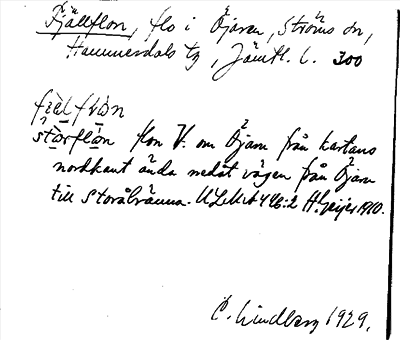 Fjällflon, flo i Öjaren, Ströms sn,
Hammerdals tg, Jämtl. l. 300
fìɛlflòn
stòrflón flon V. om Öjarn från kartans
nordkant ända nedåt vägen från Öjarn
till Storåbränna. ULMA 446:2 H. Geijer 1910.
C. Lindberg 1929.